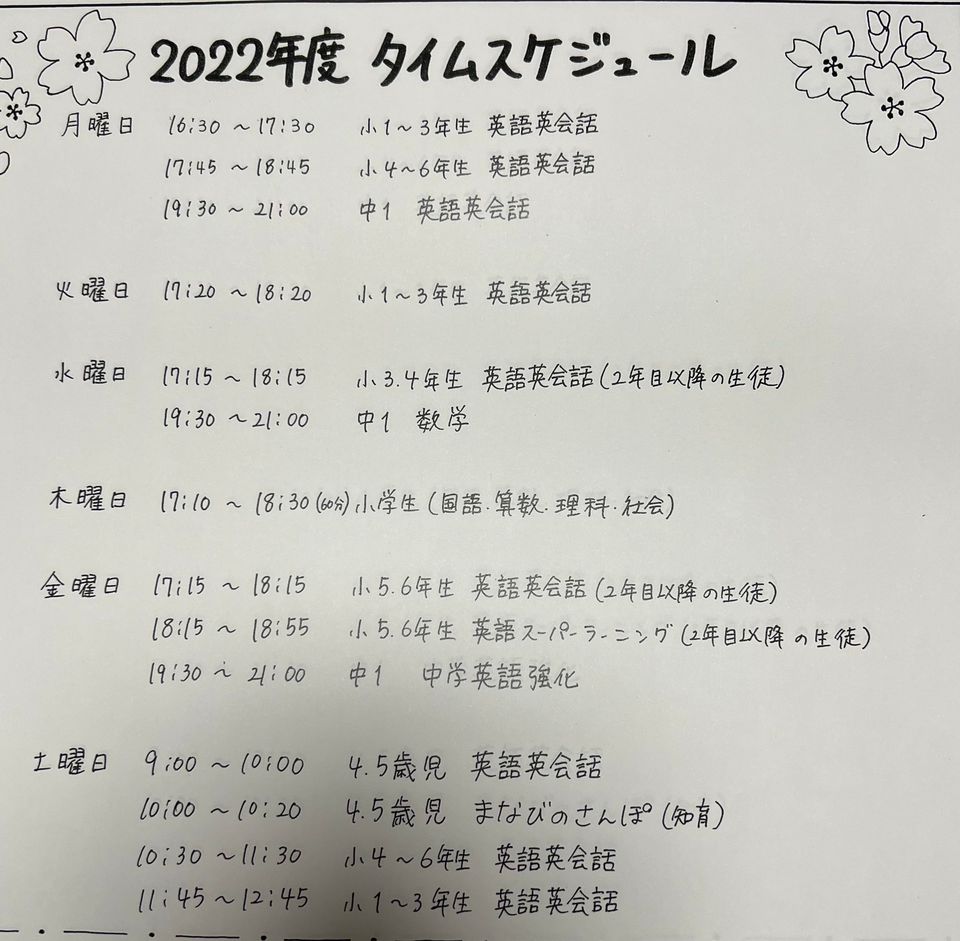 2022年度 タイムスケジュール
月曜日 16:30 ～ 17:30 小1～3年生 英語英会話
17:45 ～ 18:45 小4～6年生 英語英会話
19:30 ～ 21:00 中1 英語英会話
火曜日 17:20 ～ 18:20 小1～3年生 英語英会話
水曜日 17:15 ～ 18:15 小3.4年生 英語英会話(2年目以降の生徒)
19:30 ～ 21:00 中1 数学
木曜日 17:10 ～ 18:30(60分) 小学生(国語・算数・理科・社会)
金曜日 17:15 ～ 18:15 小5.6年生 英語英会話(2年目以降の生徒)
18:15 ～ 18:55 小5.6年生 英語スーパーラーニング(2年目以降の生徒)
19:30 ～ 21:00 中1 中学英語強化
土曜日 9:00 ～ 10:00 4.5歳児 英語英会話
10:00 ～ 10:20 4.5歳児 まなびのさんぽ(知育)
10:30 ～ 11:30 小4～6年生 英語英会話
11:45 ～ 12:45 小1～3年生 英語英会話